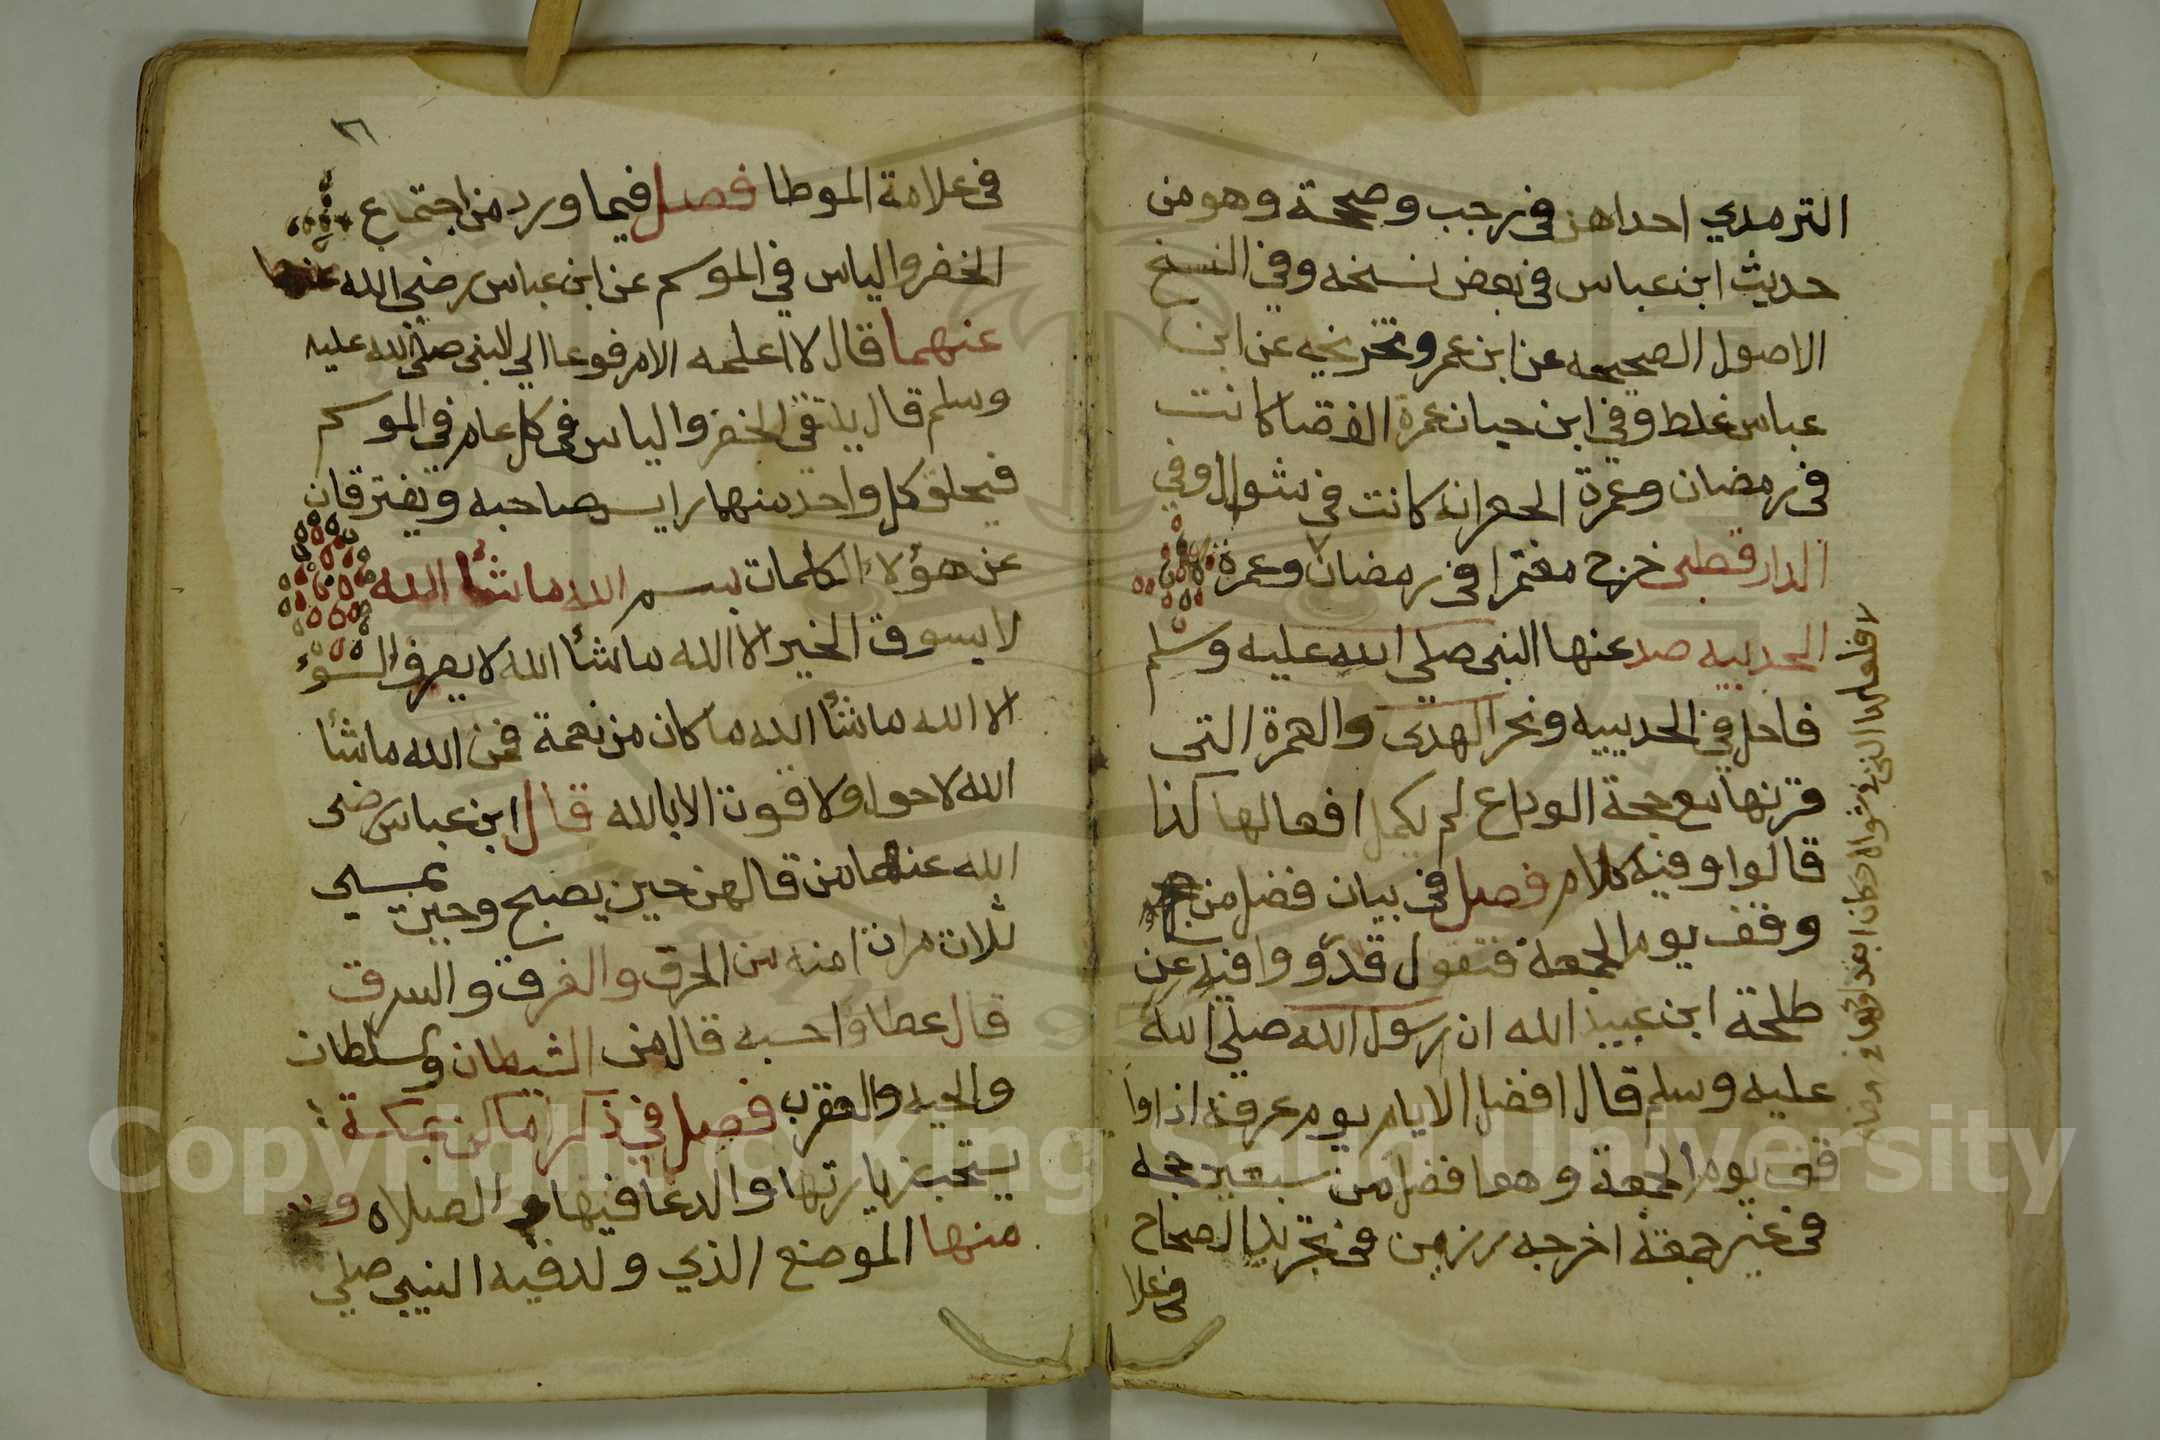 الترمدي احداهن في رجب وصححة وهو من
حديث ابن عباس في بعض نسخه وفي النسخ
الاصول الصحيحه عن ابن عمر وتخريجه عن ابن
عباس غلط وفي ابن حبان عمرة القضا كانت
في رمضان وعمرة الجعرانه كانت في شوال وفي
الدارقطني خرج معتمرا في رمضان وعمرة
الحديبيه صد عنها النبي صلي الله عليه وسلم
فاحل في الحديبيه ونحر الهدى والعمرة التي
قرنها مع حجة الوداع لم يكمل افعالها كذا
قالوا وفيه كلام فصل في بيان فضل من
وقف يوم الجمعة فنقول قد ووافيه عن
طلحة ابن عبيد الله ان رسول الله صلي الله
عليه وسلم قال افضل الايام يوم عرفة اذا وا
فق يوم الجمعة وهو افضل من سبعين حجه
في غير جمعة اخرجه رزين في تجريد الصحاح
في علا
في علامة الموطا فصل فيما ورد من اجتماع
الخضر والياس في الموسم عن ابن عباس رضي الله
عنهما قال لا اعلمه الا مرفوعا الي النبي صلي الله عليه
وسلم قال يلتقي الخضر والياس في كل عام في الموسم
فيحلق كل واحد منهما راس صاحبه ويفترقان
عن هؤلاء الكلمات بسم الله ماشأ الله
لا يسوق الخير الا الله ماشأ الله لا يصرف السؤ
الا الله ماشأ الله ما كان من نعمة فمن الله ماشأ
الله لا حول ولا قوة الا بالله قال ابن عباس رضي
الله عنهما من قالهن حين يصبح وحين يمسي
ثلاث مرات امنه من الحرق والغرق والسرق
قال عطا واحسبه قال من الشيطان والسلطان
والحيه والعقرب فصل في ذكر اماكن بمكة
يستحب زيارتها والدعا فيها والصلاه و
منها الموضع الذي ولد فيه النبي صلي